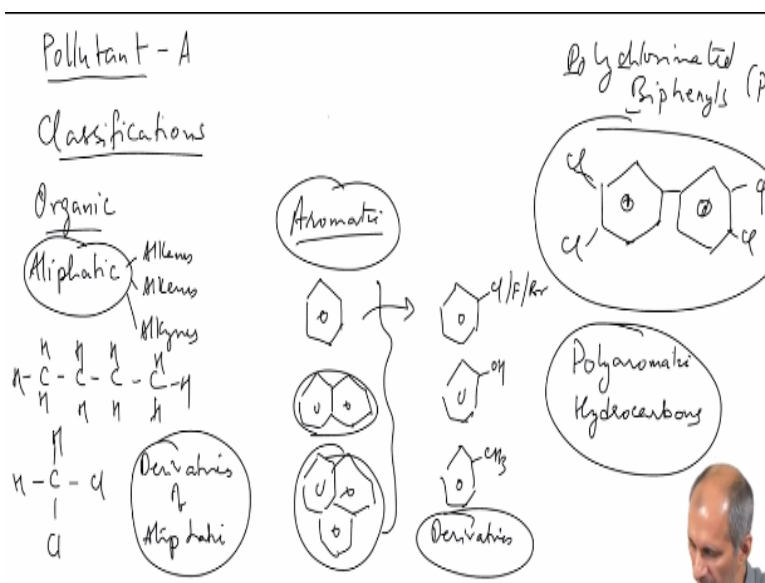 Pollutant - A
Classifications
Organic
Aliphatic
Alkenes
Alkenes
Alkynes
H H H H
H - C - C - C - C - H
H H H H
H
H - C - Cl
Cl
Derivatives
of
Aliphatic
Aromatic
Cl/F/Br
OH
CH3
Derivatives
Polychlorinated
Biphenyls (P
Cl
Cl
Cl
Cl
Polyaromatic
Hydrocarbons